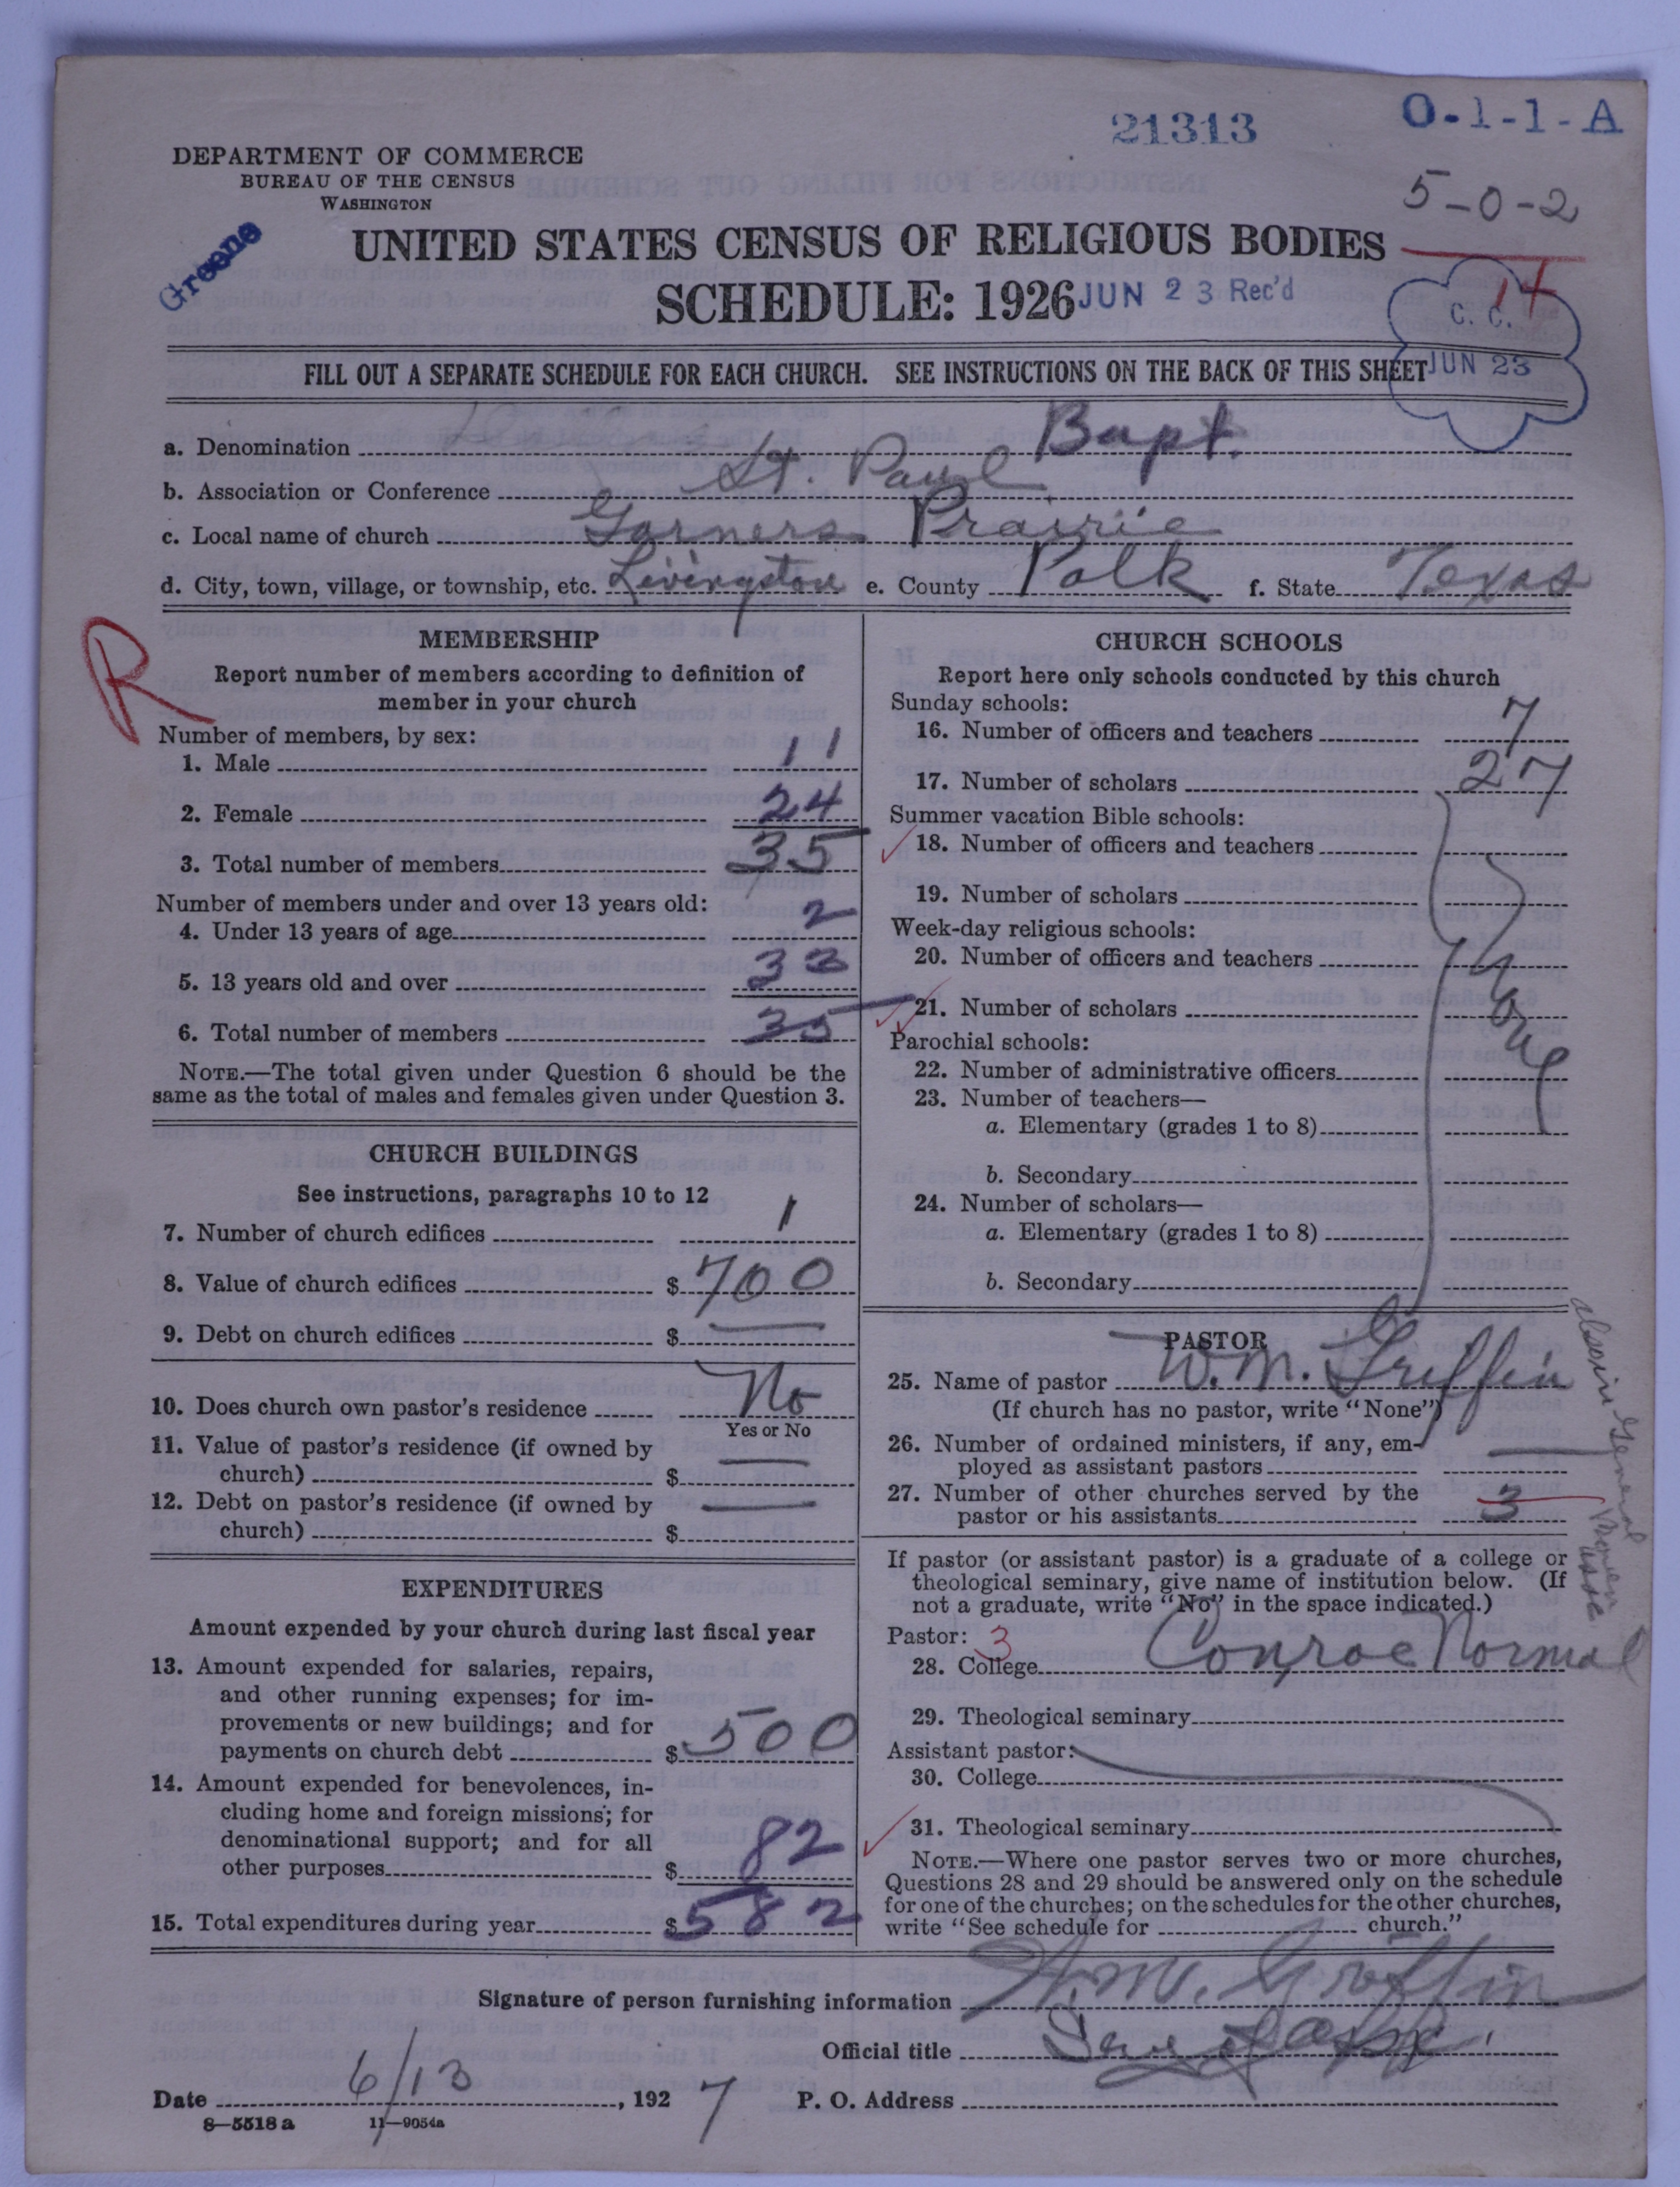 21313
O-1-1-A
DEPARTMENT OF COMMERCE
BUREAU OF THE CENSUS
WASHINGTON
5-0-2
Greene
UNITED STATES CENSUS OF RELIGIOUS BODIES
SCHEDULE: 1926
JUN 23 Rec'd
14
C. C.
JUN 23
FILL OUT A SEPARATE SCHEDULE FOR EACH CHURCH. SEE INSTRUCTIONS ON THE BACK OF THIS SHEET
a. Denomination Bapt.
b. Association or Conference St. Paul
c. Local name of church Garners Prairie
d. City, town, village, or township, etc. Livingston e. County Polk f. State Texas
R
MEMBERSHIP
Report number of members according to definition of
member in your church
Number of members, by sex:
1. Male 11
2. Female 24
3. Total number of members 35
Number of members under and over 13 years old:
4. Under 13 years of age 2
5. 13 years old and over 33
6. Total number of members 35
NOTE.—The total given under Question 6 should be the
same as the total of males and females given under Question 3.
CHURCH BUILDINGS
See instructions, paragraphs 10 to 12
7. Number of church edifices 1
8. Value of church edifices $ 700
9. Debt on church edifices $ —
10. Does church own pastor's residence No
Yes or No
11. Value of pastor's residence (if owned by
church) $ —
12. Debt on pastor's residence (if owned by
church) $ —
EXPENDITURES
Amount expended by your church during last fiscal year
13. Amount expended for salaries, repairs,
and other running expenses; for im-
provements or new buildings; and for
payments on church debt $ 500
14. Amount expended for benevolences, in-
cluding home and foreign missions; for
denominational support; and for all
other purposes $ 82
15. Total expenditures during year $ 582
CHURCH SCHOOLS
Report here only schools conducted by this church
Sunday schools:
16. Number of officers and teachers 7
17. Number of scholars 27
Summer vacation Bible schools:
18. Number of officers and teachers
19. Number of scholars
Week-day religious schools:
20. Number of officers and teachers
21. Number of scholars
None
Parochial schools:
22. Number of administrative officers
23. Number of teachers—
a. Elementary (grades 1 to 8)
b. Secondary
24. Number of scholars—
a. Elementary (grades 1 to 8)
b. Secondary
PASTOR
25. Name of pastor W. M. Griffin
(If church has no pastor, write "None")
26. Number of ordained ministers, if any, em-
ployed as assistant pastors —
27. Number of other churches served by the
pastor or his assistants 3
General
If pastor (or assistant pastor) is a graduate of a college or
theological seminary, give name of institution below. (If
not a graduate, write "No" in the space indicated.)
Pastor: 3
28. College Conroe Normal
29. Theological seminary
Assistant pastor:
30. College
31. Theological seminary
NOTE.—Where one pastor serves two or more churches,
Questions 28 and 29 should be answered only on the schedule
for one of the churches; on the schedules for the other churches,
write "See schedule for church."
Signature of person furnishing information W. M. Griffin
Official title
Date 6/13, 1927 P. O. Address
8—5518 a 11—9054a